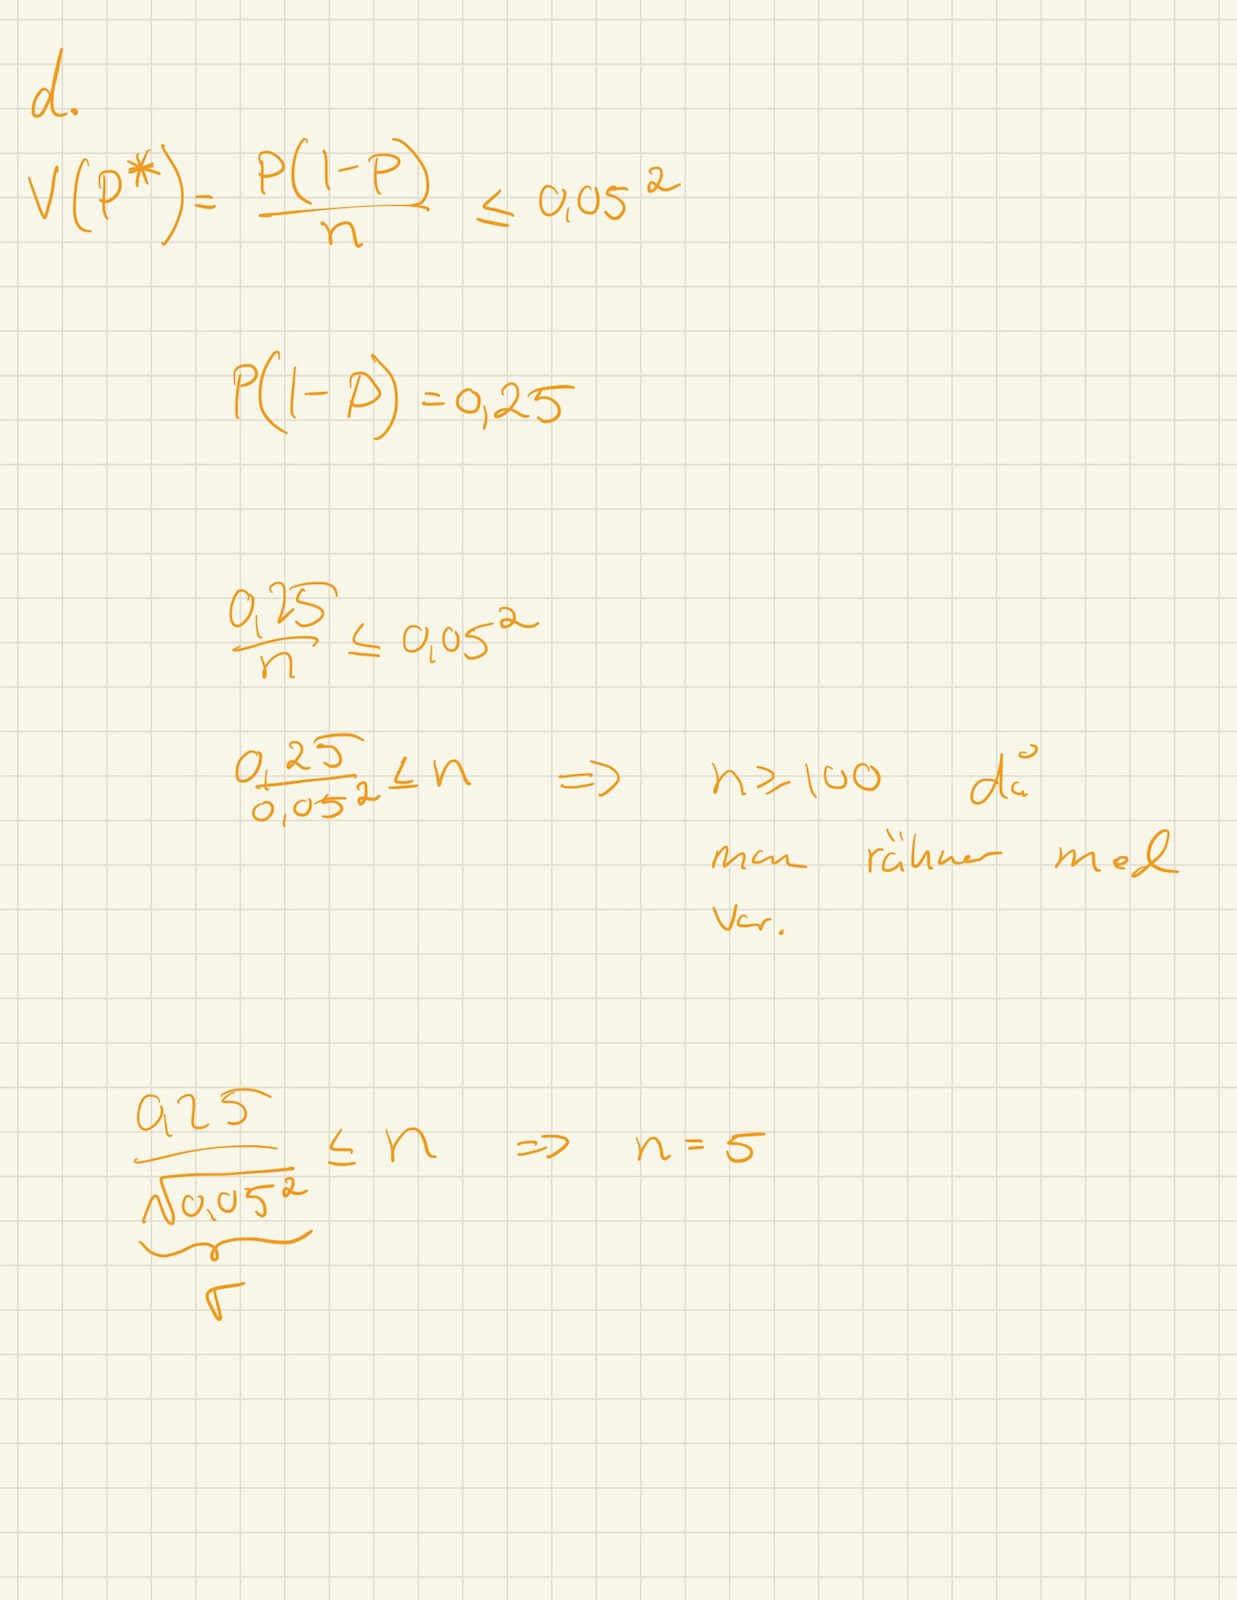 d.
V(P*) = P(1-P)/n ≤ 0,05²
P(1-P) = 0,25
0,25/n ≤ 0,05²
0,25/0,05² ≤ n ⇒ n ≥ 100 då
man rähner med
var.
0,25/√0,05² ≤ n ⇒ n = 5
σ